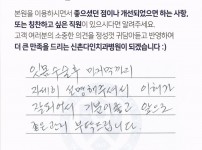 본원을 이용하시면서 좋으셨던 점이나 개선되었으면 하는 사항,
또는 칭찬하고 싶은 직원이 있으시다면 알려주세요.
고객 여러분의 소중한 의견을 정성껏 귀담아듣고 반영하여
더 큰 만족을 드리는 신촌다인치과병원이 되겠습니다 :)
잇몸수술후 마지막까지
자세히 설명해주셔서 이해가
잘되어서 기분이좋고 앞으로
좋은관리 부탁드립니다.